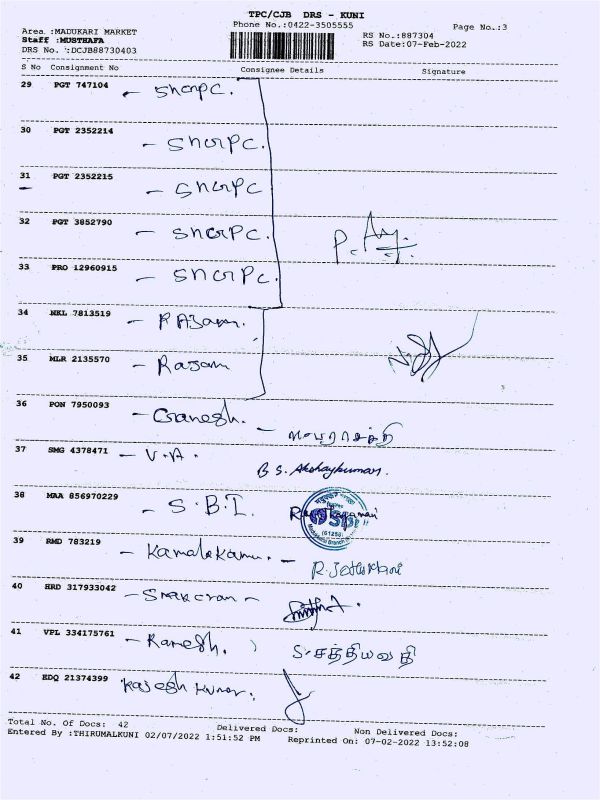 TPC/CJB DRS - KUNI
Phone No.:0422-3505555
Page No.:3
Area :MADUKARI MARKET
Staff :MUSTHAFA
DRS No. :DCJB88730403
RS No.:887304
RS Date:07-Feb-2022
S No Consignment No Consignee Details Signature
29 PGT 747104 - snGrpc.
30 PGT 2352214 - snGrpc.
31 PGT 2352215 - snGrpc
32 PGT 3852790 - snGrpc.
33 PRO 12960915 - snGrpc.
34 NKL 7813519 - RAJam.
35 MLR 2135570 - Rajam
36 PON 7950093 - Ganesh. -
37 SMG 4378471 - V.A. B S. Akshaykumar.
38 MAA 856970229 - S.B.I.
(61258)
39 RMD 783219 - -
40 HRD 317933042
41 VPL 334175761 - Ramesh. S. சத்தியவதி
42 EDQ 21374399 Rajesh Kumar.
Total No. Of Docs: 42 Delivered Docs: Non Delivered Docs:
Entered By :THIRUMALKUNI 02/07/2022 1:51:52 PM Reprinted On: 07-02-2022 13:52:08